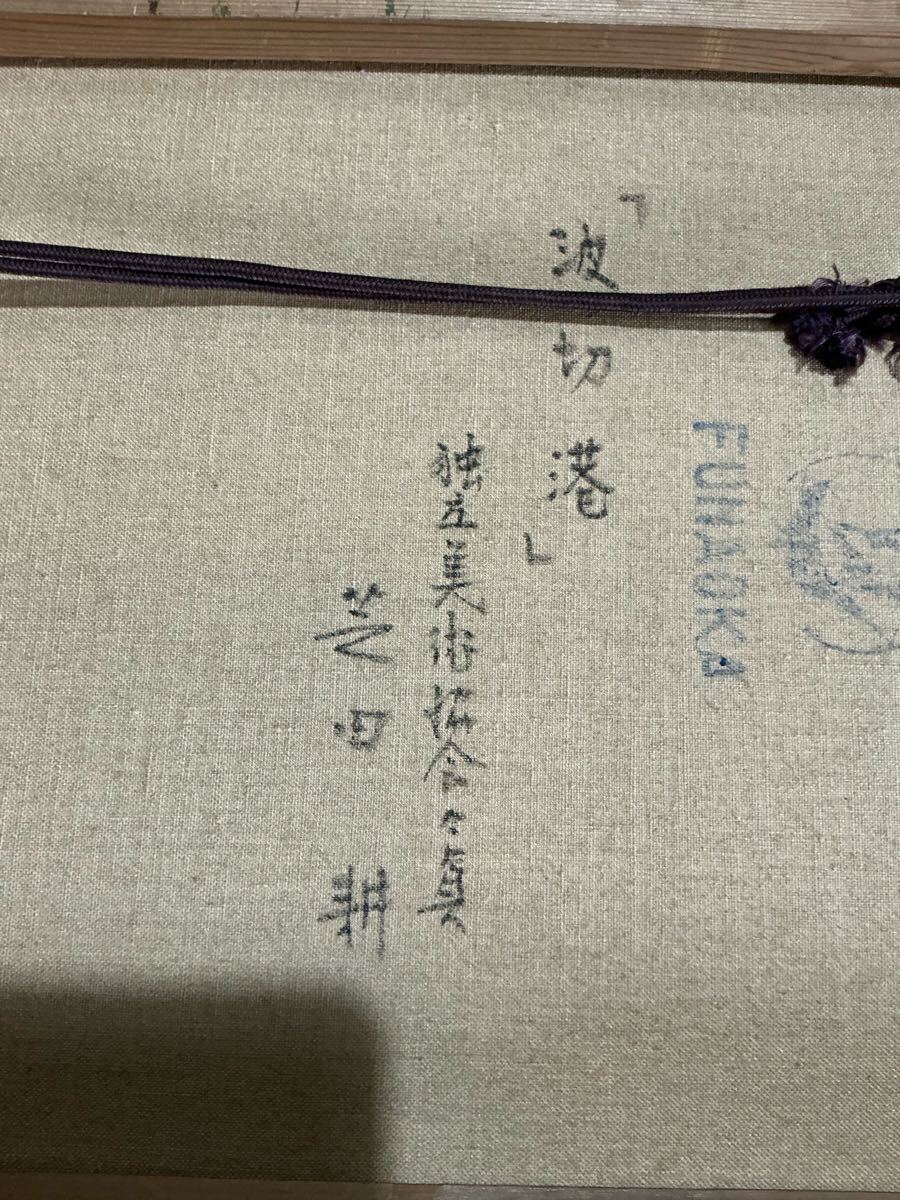 「波切港」
独立美術協会々員
芝田耕
FUNAOKA